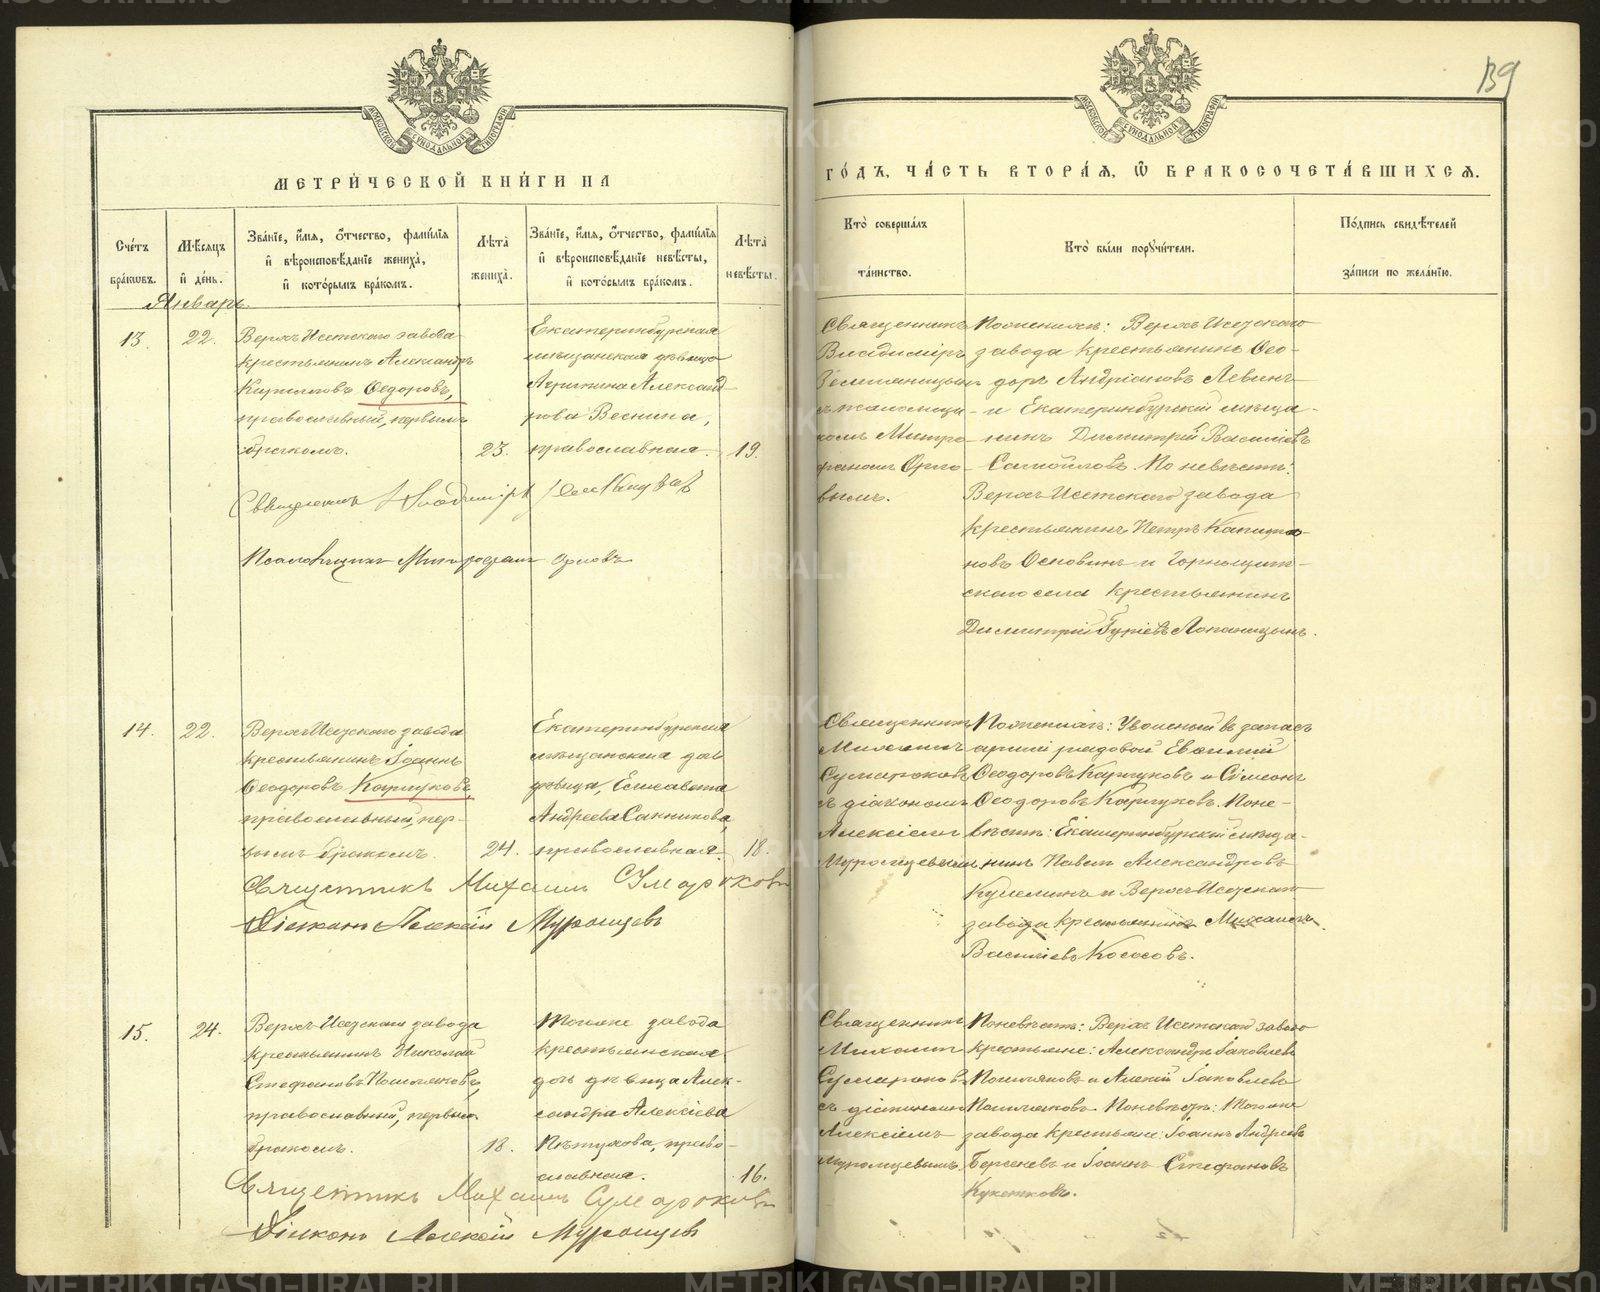 139
МЕТРИ́ЧЕСКОЙ КНИ́ГИ НА
ГО́ДЪ, ЧА́СТЬ ВТОРА́Я, Ѽ БРАКОСОЧЕТА́ВШИХСЯ.
Сче́тъ бра́кѡвъ.
Мѣ́сяцъ и҆ де́нь.
Зва́нїе, и҆́мѧ, ѻ҆́тчество, фами́лїѧ и҆ вѣроисповѣ́данїе жениха̀, и҆ кото́рымъ бра́комъ.
Лѣ́та жениха̀.
Зва́нїе, и҆́мѧ, ѻ҆́тчество, фами́лїѧ и҆ вѣроисповѣ́данїе невѣ́сты, и҆ кото́рымъ бра́комъ.
Лѣ́та невѣ́сты.
Кто̀ соверша́лъ та́инство.
Кто̀ бы́ли поручи́тели.
По́дпись свидѣ́телей за́писи по жела́нїю.
Январь.
13.
22.
Верхъ Исетскаго завода
крестьянинъ Александръ
Кирилловъ Ѳедоровъ,
православный, первымъ
бракомъ.
23.
Екатеринбургская
мѣщанская дѣвица
Александ-
рова Веснина,
православная.
19.
Священникъ
Владимiръ
Земляницынъ
съ псаломщи-
комъ Митро-
фаномъ Орло-
вымъ.
По женихѣ: Верхъ Исетскаго
завода крестьянинъ Ѳео-
доръ Андрiановъ Левинъ
и Екатеринбургскiй мѣща-
нинъ Димитрiй Василiевъ
Самойловъ. По невѣстѣ:
Верхъ Исетскаго завода
крестьянинъ Петръ Капито-
новъ Основинъ и Горнощит-
скаго села крестьянинъ
Димитрiй Гурiевъ
Священникъ Владимiръ Земляницынъ
Псаломщикъ Митрофанъ Орловъ
14.
22.
Верхъ Исетскаго завода
крестьянинъ Iоаннъ
Ѳеодоровъ Каргуковъ,
православный, пер-
вымъ бракомъ.
24.
Екатеринбургская
мѣщанская дочь
дѣвица, Елисавета
Андреева Санникова,
православная.
18.
Священникъ
Михаилъ
Сумароковъ
съ дiакономъ
Алексiемъ
Муромцевымъ
По женихѣ: Уволеный въ запасъ
армiи рядовой Евѳимiй
Ѳеодоровъ Каргуковъ и Сiмеонъ
Ѳеодоровъ Каргуковъ. По не-
вѣстѣ: Екатеринбургскiй мѣща-
нинъ Павелъ Александровъ
и Верхъ Исетскаго
завода крестьянинъ Михаилъ
Василiевъ Кососовъ.
Священникъ Михаилъ Сумароковъ
Дiаконъ Алексiй Муромцевъ
15.
24.
Верхъ Исетскаго завода
крестьянинъ Николай
Стефановъ
православный, первымъ
бракомъ.
18.
завода
крестьянская
дочь дѣвица Алек-
сандра Алексiева
Пѣтухова, право-
славная.
16.
Священникъ
Михаилъ
Сумароковъ
съ дiакономъ
Алексiемъ
Муромцевымъ.
По невѣстѣ: Верхъ Исетскаго завода
крестьяне: Александръ Iаковлевъ
и Алексiй Iаковлевъ
По невѣстѣ:
завода крестьяне: Iоаннъ Андреевъ
Берсеневъ и Iоаннъ Стефановъ
Священникъ Михаилъ Сумароковъ
Дiаконъ Алексiй Муромцевъ
METRIKI.GASO-URAL.RU